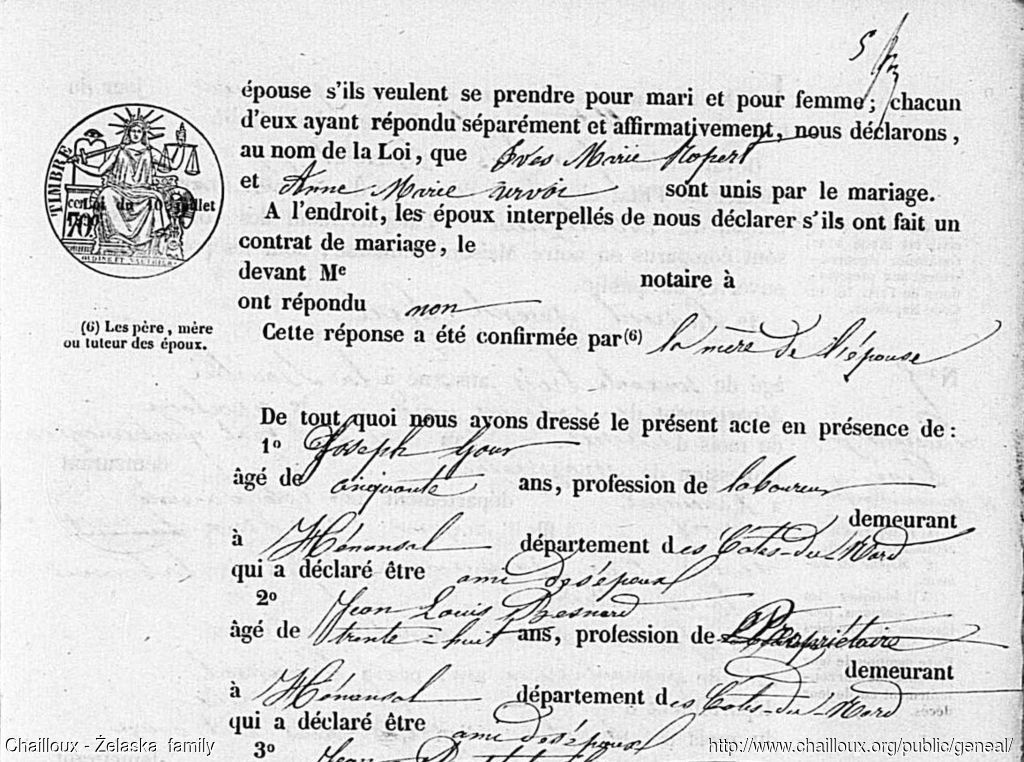 épouse s'ils veulent se prendre pour mari et pour femme; chacun
d'eux ayant répondu séparément et affirmativement, nous déclarons,
au nom de la Loi, que Yves Marie Ropert
et Anne Marie Urvoi sont unis par le mariage.
A l'endroit, les époux interpellés de nous déclarer s'ils ont fait un
contrat de mariage, le
devant Me notaire à
ont répondu non
Cette réponse a été confirmée par (6) la mère de l'épouse
TIMBRE
(6) Les père, mère
ou tuteur des époux.
De tout quoi nous avons dressé le présent acte en présence de:
1º Joseph Gour
âgé de cinquante ans, profession de laboureur
demeurant
à Hénansal département des Cotes-du-Nord
qui a déclaré être ami des époux
2º Jean Louis Besnard
âgé de trente=huit ans, profession de Propriétaire
demeurant
à Hénansal département des Cotes-du-Nord
qui a déclaré être ami des époux
3º Jean
Chailloux - Żelaska family
http://www.chailloux.org/public/geneal/